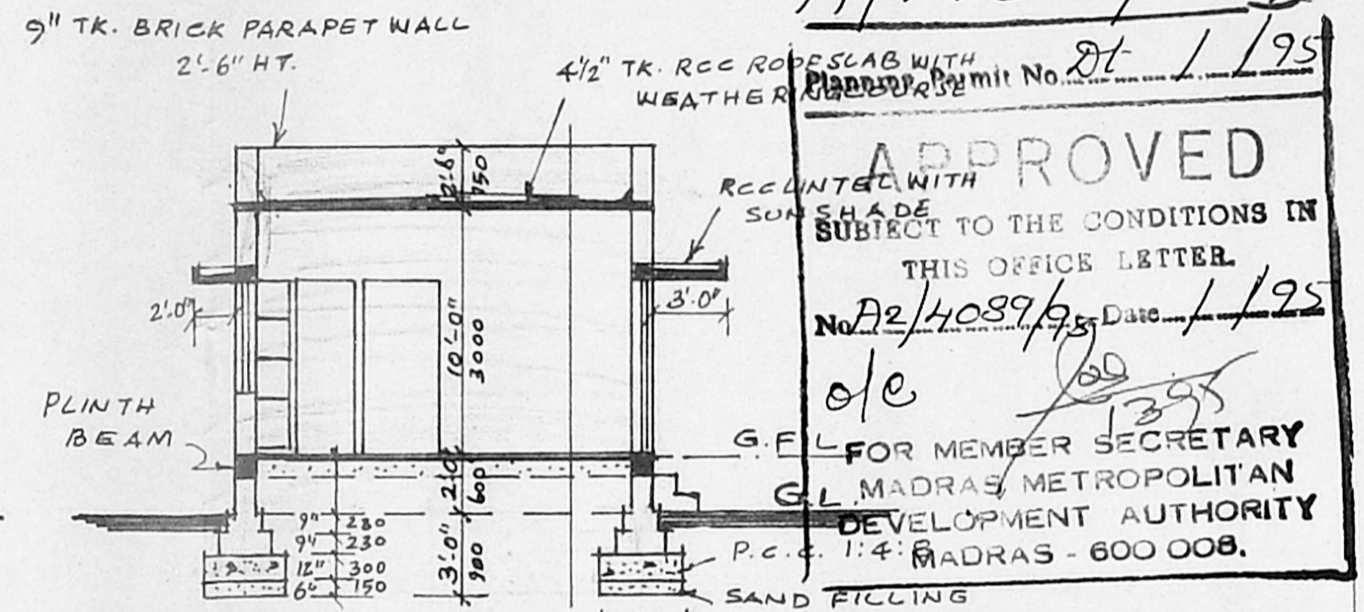 9" TK. BRICK PARAPET WALL
2'-6" HT.
4½" TK. RCC ROOF SLAB WITH
WEATHERING COURSE
RCC LINTEL WITH
SUN SHADE
2'-6"
750
2'-0"
3'-0"
10'-0"
3000
PLINTH
BEAM
G.F.L
G.L.
2'-0"
600
3'-0"
900
9" 230
9" 230
12" 300
6" 150
P.C.C. 1:4:8
SAND FILLING
Planning Permit No. Dt 1 /95
APPROVED
SUBJECT TO THE CONDITIONS IN
THIS OFFICE LETTER.
No A2/4089/95 Date / /95
o/c
FOR MEMBER SECRETARY
MADRAS METROPOLITAN
DEVELOPMENT AUTHORITY
MADRAS - 600 008.